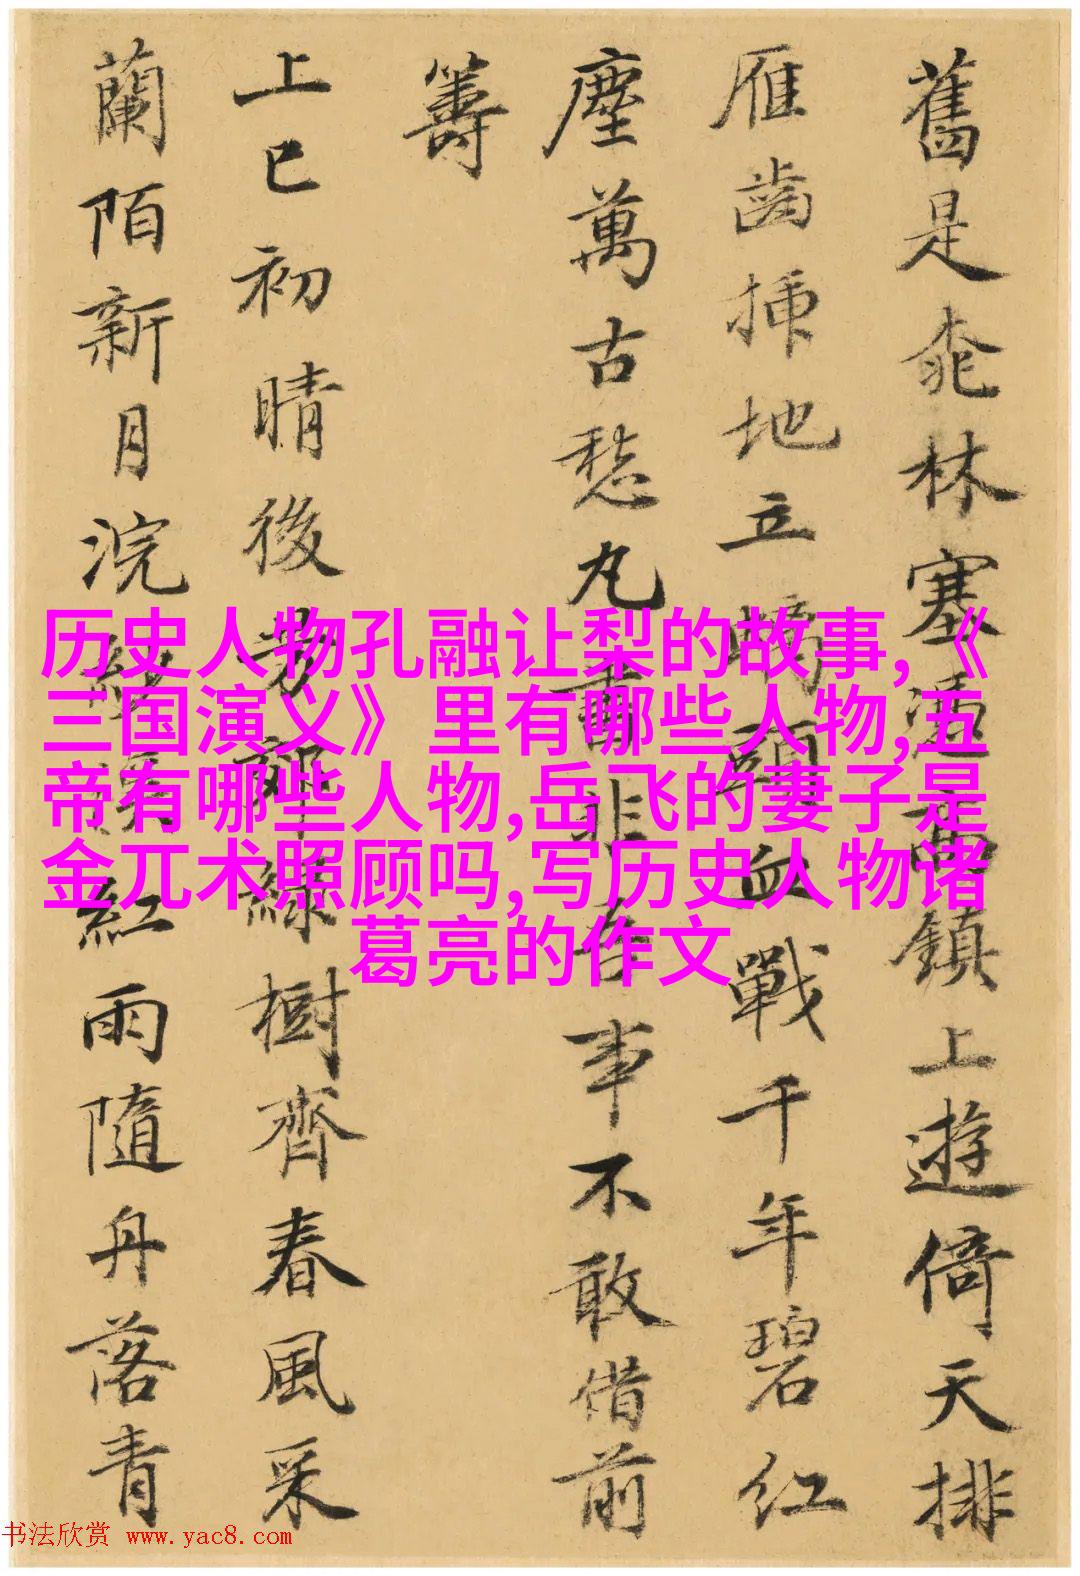 舊是桃林塞鎮上遊倚天排
雁齒插地立螭頭血戰千年碧紅
塵萬古愁丸書非吾事不敢借前
籌
上巳初晴後芳郊綠樹齊春風采
蘭陌新月浣溪紅雨隨舟落青
历史人物孔融让梨的故事,《
三国演义》里有哪些人物,五
帝有哪些人物,岳飞的妻子是
金兀术照顾吗,写历史人物诸
葛亮的作文
书法欣赏 www.yac8.com